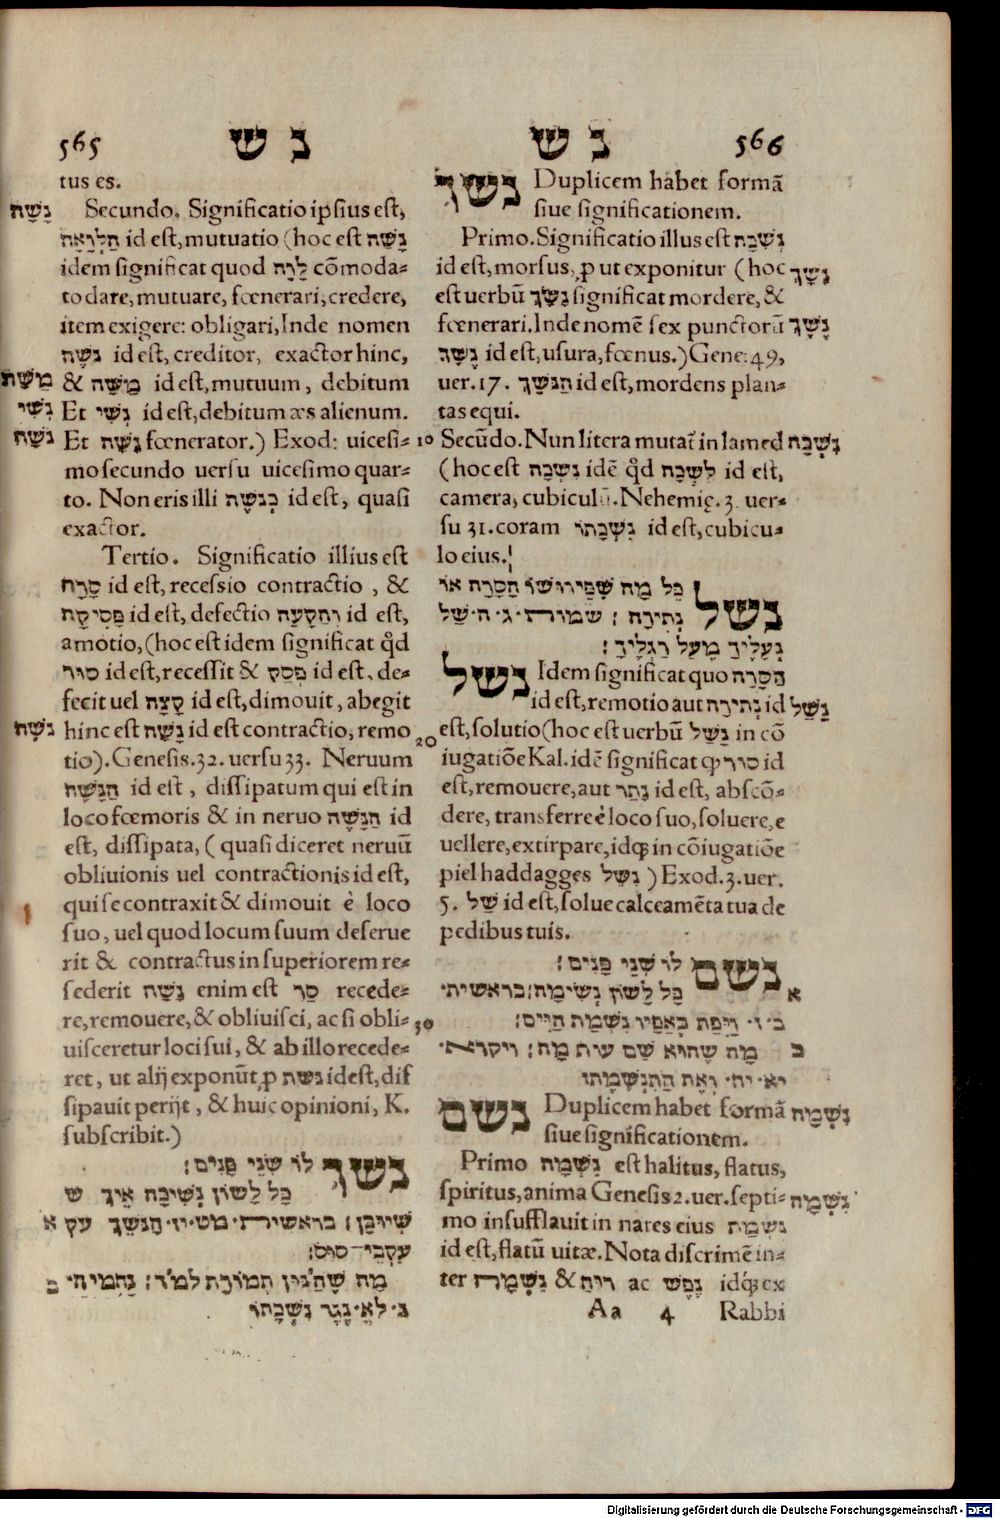 565 נ ש
tus es.
נָשָׁה Secundo. Significatio ipsius est,
הַלְוָאָה id est, mutuatio (hoc est נָשָׁה
idem significat quod לָוָה cõmoda-
to dare, mutuare, fœnerari, credere,
item exigere: obligari, Inde nomen
נֹשֶׁה id est, creditor, exactor hinc,
מַשֶּׁה & מַשֶּׁה id est, mutuum, debitum
נְשִׁי Et נְשִׁי id est, debitum æs alienum.
נֹשֶׁה Et נֹשֶׁה fœnerator.) Exod: uicesi-
mo secundo uersu uicesimo quar-
to. Non eris illi כְּנֹשֶׁה id est, quasi
exactor.
Tertio. Significatio illius est
סָרָה id est, recessio contractio, &
פְּסִיקָה id est, defectio וְהַסָעָה id est,
amotio, (hoc est idem significat q̃d
סור id est, recessit & פָּסַק id est, de-
fecit uel קָצָה id est, dimouit, abegit
נָשֶׁה hinc est נָשֶׁה id est contractio, remo
tio). Genesis. 32. uersu 33. Neruum
הַנָּשֶׁה id est, dissipatum qui est in
loco fœmoris & in neruo הַנָּשֶׁה id
est, dissipata, (quasi diceret neruũ
obliuionis uel contractionis id est,
qui se contraxit & dimouit è loco
suo, uel quod locum suum deserue
rit & contractus in superiorem re-
sederit נָשָׁה enim est סַר recede-
re, remouere, & obliuisci, ac si obli-
uisceretur loci sui, & ab illo recede-
ret, ut alij exponũt, ꝓ נשת id est, dis
sipauit perijt, & huic opinioni, K.
subscribit.)
נשך לו שני פנים:
כָּל לַשׁוֹן נְשִׁיכָה אֵיךְ ש
שיוכן: בראשית. מט. יז. הַנֹּשֵׁךְ עק א
עִקְבֵי־סוּס:
מַה שֶׁהַנּוּן תמורת למ׳ד: נחמיה. ב
ג. לא. נֶגֶד נִשְׁכָּתוֹ
נ ש 566
נשך Duplicem habet formã
siue significationem.
Primo. Significatio illus est נְשִׁכָה
id est, morsus, ꝓ ut exponitur (hoc נָשַׁךְ
est uerbũ נָשַׁךְ significat mordere, &
fœnerari. Inde nomẽ sex punctorũ נֶשֶׁךְ
נֶשֶׁךְ id est, usura, fœnus.) Gene: 49,
uer. 17. הַנֹּשֵׁךְ id est, mordens plan-
tas equi.
10 Secũdo. Nun litera mutat in lamed נִשְׁכָּה
(hoc est נִשְׁכָּה idẽ q̃d לִשְׁכָּה id est,
camera, cubiculũ. Nehemię. 3. uer-
su 31. coram נִשְׁכָּתוֹ id est, cubicu-
lo eius.
נשל כָּל מַה שֶׁפֵּירוּשׁוֹ הֲסָרָה אוֹ
נְתִירָה: שמות. ג. ה. שַׁל
נְעָלֶיךָ מֵעַל רַגְלֶיךָ:
נשל Idem significat quo הֲסָרָה
id est, remotio aut נְתִירָה id נָשַׁל
20 est, solutio (hoc est uerbũ נָשַׁל in cõ
iugatiõe Kal. idẽ significat ꝙ סור id
est, remouere, aut נָתַר id est, abscõ-
dere, transferre è loco suo, soluere, e
uellere, extirpare, idq; in cõiugatiõe
piel haddagges נִשֵּׁל) Exod. 3. uer.
5. שַׁל id est, solue calceamẽta tua de
pedibus tuis.
נשם לוֹ שְׁנֵי פָנִים:
כָּל לָשׁוֹן נְשִׁימָה: בראשית. א
ב. ז. וַיִּפַּח בְּאַפָּיו נִשְׁמַת חַיִּים:
30 מַה שֶׁהוּא שֵׁם עוֹף טָמֵא: ויקרא. ב
יא. יח. וְאֶת הַתִּנְשֶׁמֶת
נשם Duplicem habet formã נְשָׁמָה
siue significationem.
Primo נְשִׁמָה est halitus, flatus,
spiritus, anima Genesis 2. uer. septi- נְשִׁמָה
mo insufflauit in nares eius נשמת
id est, flatũ uitæ. Nota discrimẽ in-
ter נְשָׁמָה & רוּחַ ac נֶפֶשׁ idq; ex
Aa 4 Rabbi
Digitalisierung gefördert durch die Deutsche Forschungsgemeinschaft - DFG